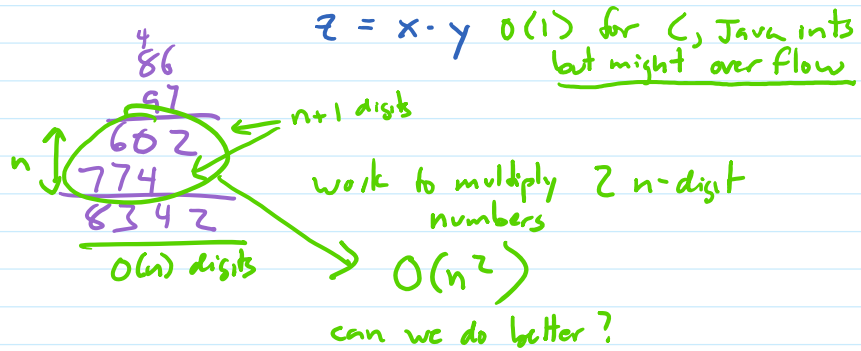 z = x · y O(1) for C, Java ints
but might overflow
4
86
97
602
774
8342
n
n+1 digits
O(n) digits
work to multiply 2 n-digit
numbers
O(n²)
can we do better?